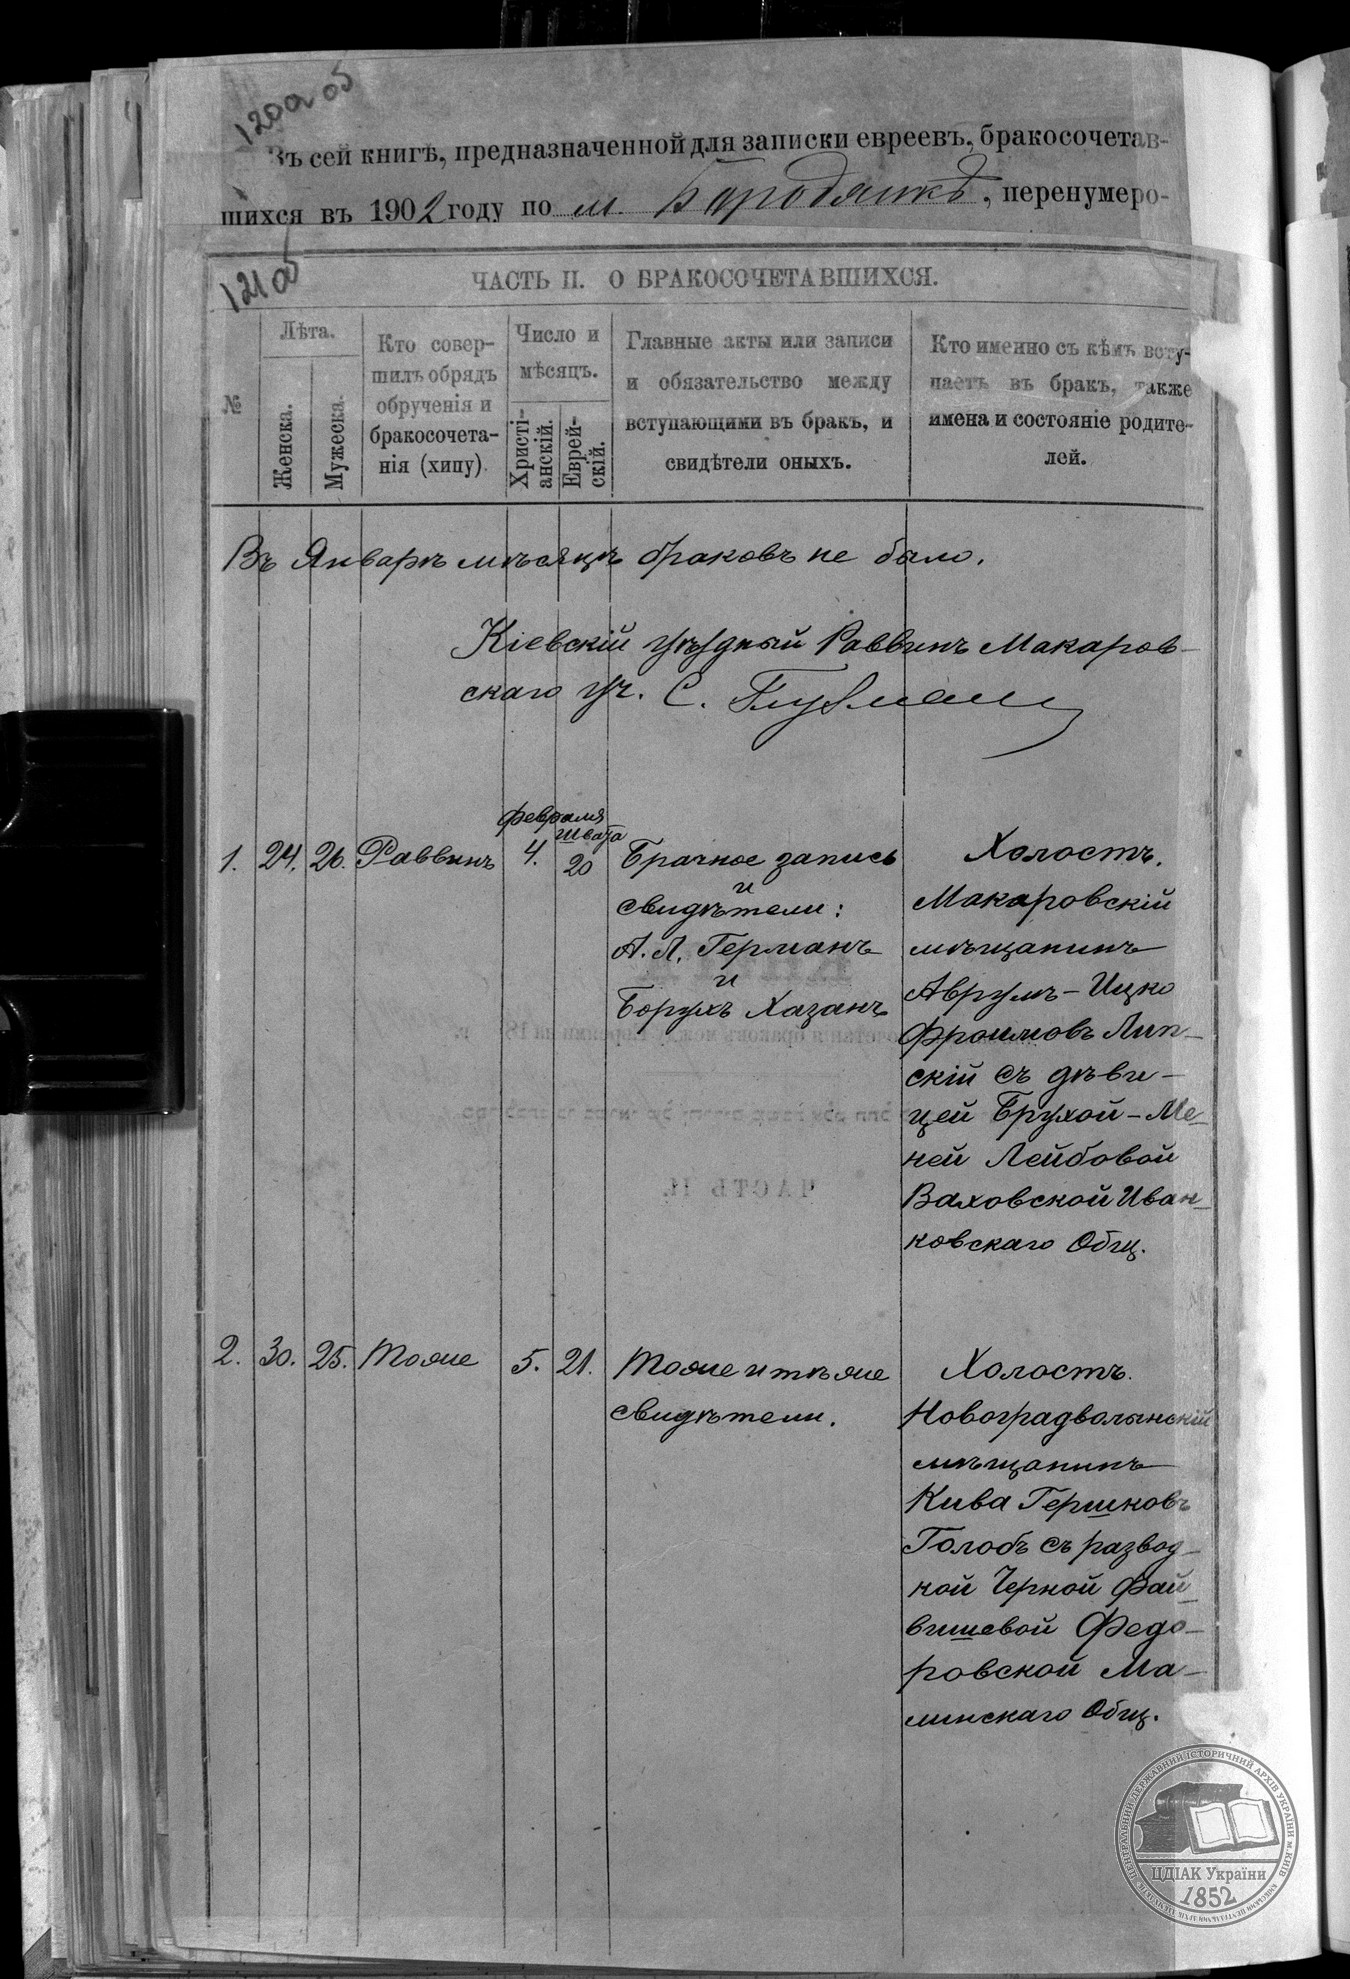 120а об
Въ сей книгѣ, предназначенной для записки евреевъ, бракосочетав-
шихся въ 1902 году по м. Бородянкѣ, перенумеро-
121 об
ЧАСТЬ II. О БРАКОСОЧЕТАВШИХСЯ.
№
Лѣта.
Женска.
Мужеска.
Кто совер-
шилъ обрядъ
обрученія и
бракосочета-
нія (хипу)
Число и
мѣсяцъ.
Христі-
анскій.
Еврей-
скій.
Главные акты или записи
и обязательство между
вступающими въ бракъ, и
свидѣтели оныхъ.
Кто именно съ кѣмъ всту-
паетъ въ бракъ, также
имена и состояніе родите-
лей.
Въ Январѣ мѣсяцѣ браковъ не было.
Кіевскій уѣздный Раввинъ Макаров-
скаго уч. С. Глузман
Февраля
Швата
1. 24. 26. Раввинъ 4. 20
Брачное запись
и
свидѣтели:
А. Л. Германъ
и
Борухъ Хазанъ
Холостъ.
Макаровскій
мѣщанинъ
Аврумъ-Ицко
Фроимовъ Лип-
скій съ дѣви-
цей Брухой-Ме-
ней Лейбовой
Ваховской Иван-
ковскаго Общ.
2. 30. 25. Тоже 5. 21.
Тоже и тѣ же
свидѣтели.
Холостъ.
Новоградволынскій
мѣщанинъ
Кива Гершковъ
Голобъ съ развод-
ной Черной Фай-
вишевой Федо-
ровской Ма-
линскаго Общ.
ЧАСТЬ II.
ЦЕНТРАЛЬНИЙ ДЕРЖАВНИЙ ІСТОРИЧНИЙ АРХІВ УКРАЇНИ м.КИЇВ
ЦДІАК України
1852